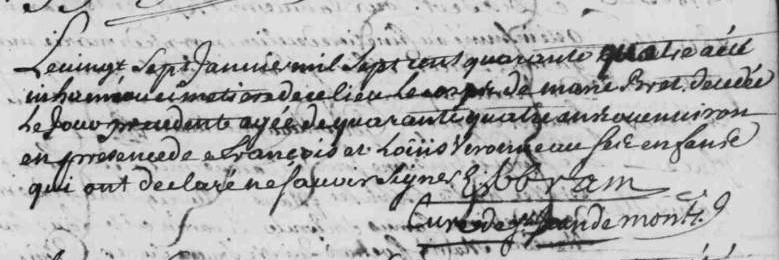 Le vingt sept Janvier mil sept cent quarante quatre a été
inhumé au cimetiere de ce lieu le corps de marie Bret decedée
le Jour precedent agée de quarante quatre ans ou environ
en presence de François et Loüis Veronneau ses enfans
qui ont declaré ne sçavoir signer
Curé de St Jean de monts